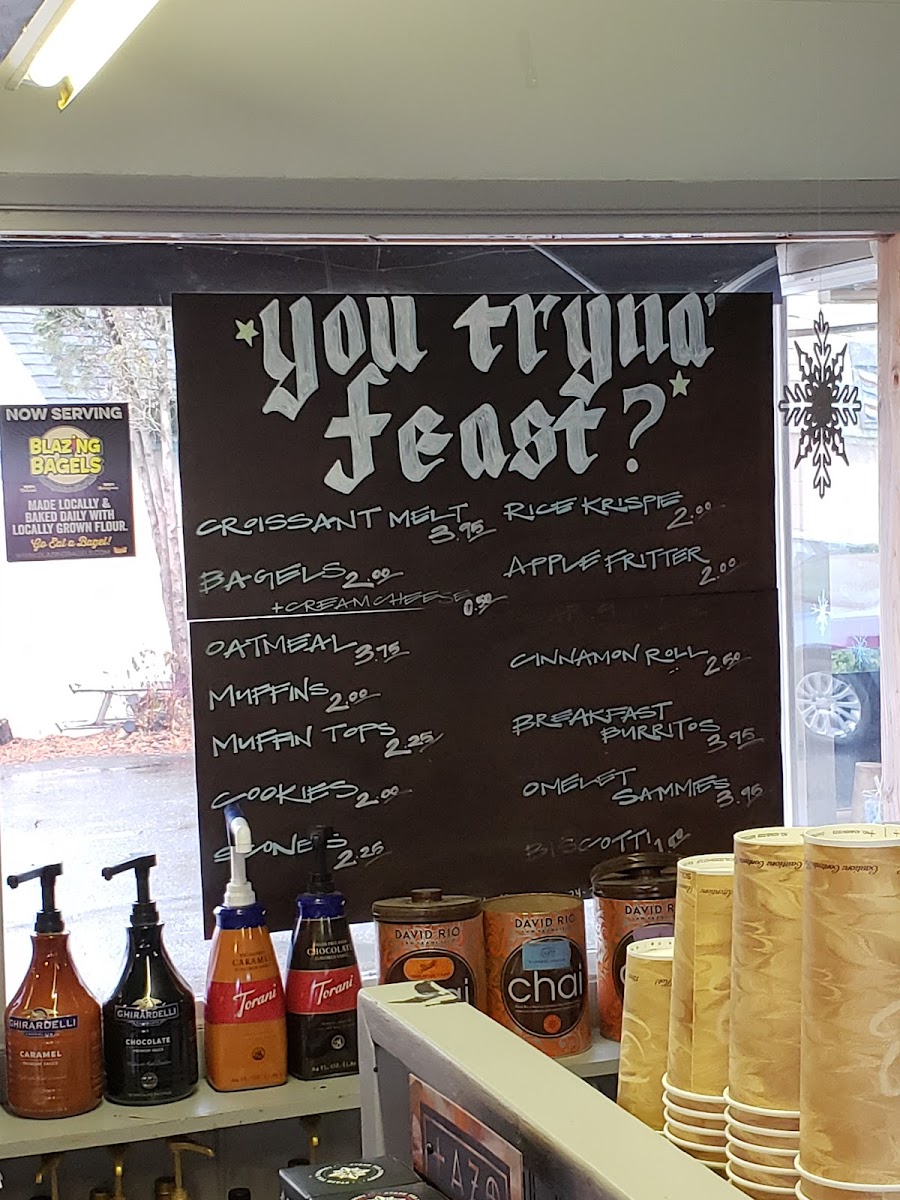 you tryna'
feast?
CROISSANT MELT 3.95
BAGELS 2.00
+ CREAM CHEESE 0.50
OATMEAL 3.75
MUFFINS 2.00
MUFFIN TOPS 2.25
COOKIES 2.00
SCONES 2.25
RICE KRISPIE 2.00
APPLE FRITTER 2.00
CINNAMON ROLL 2.50
BREAKFAST
BURRITOS 3.95
OMELET
SAMMIES 3.95
BISCOTTI 1.00
NOW SERVING
BLAZING
BAGELS
MADE LOCALLY &
BAKED DAILY WITH
LOCALLY GROWN FLOUR.
Go Eat a Bagel!
WWW.BLAZINGBAGELS.COM
GHIRARDELLI
CARAMEL
PREMIUM SAUCE
GHIRARDELLI
CHOCOLATE
PREMIUM SAUCE
CARAMEL
Torani
CHOCOLATE
Torani
DAVID RIO
SAN FRANCISCO
chai
DAVID RIO
SAN FRANCISCO
chai
DAVID RIO